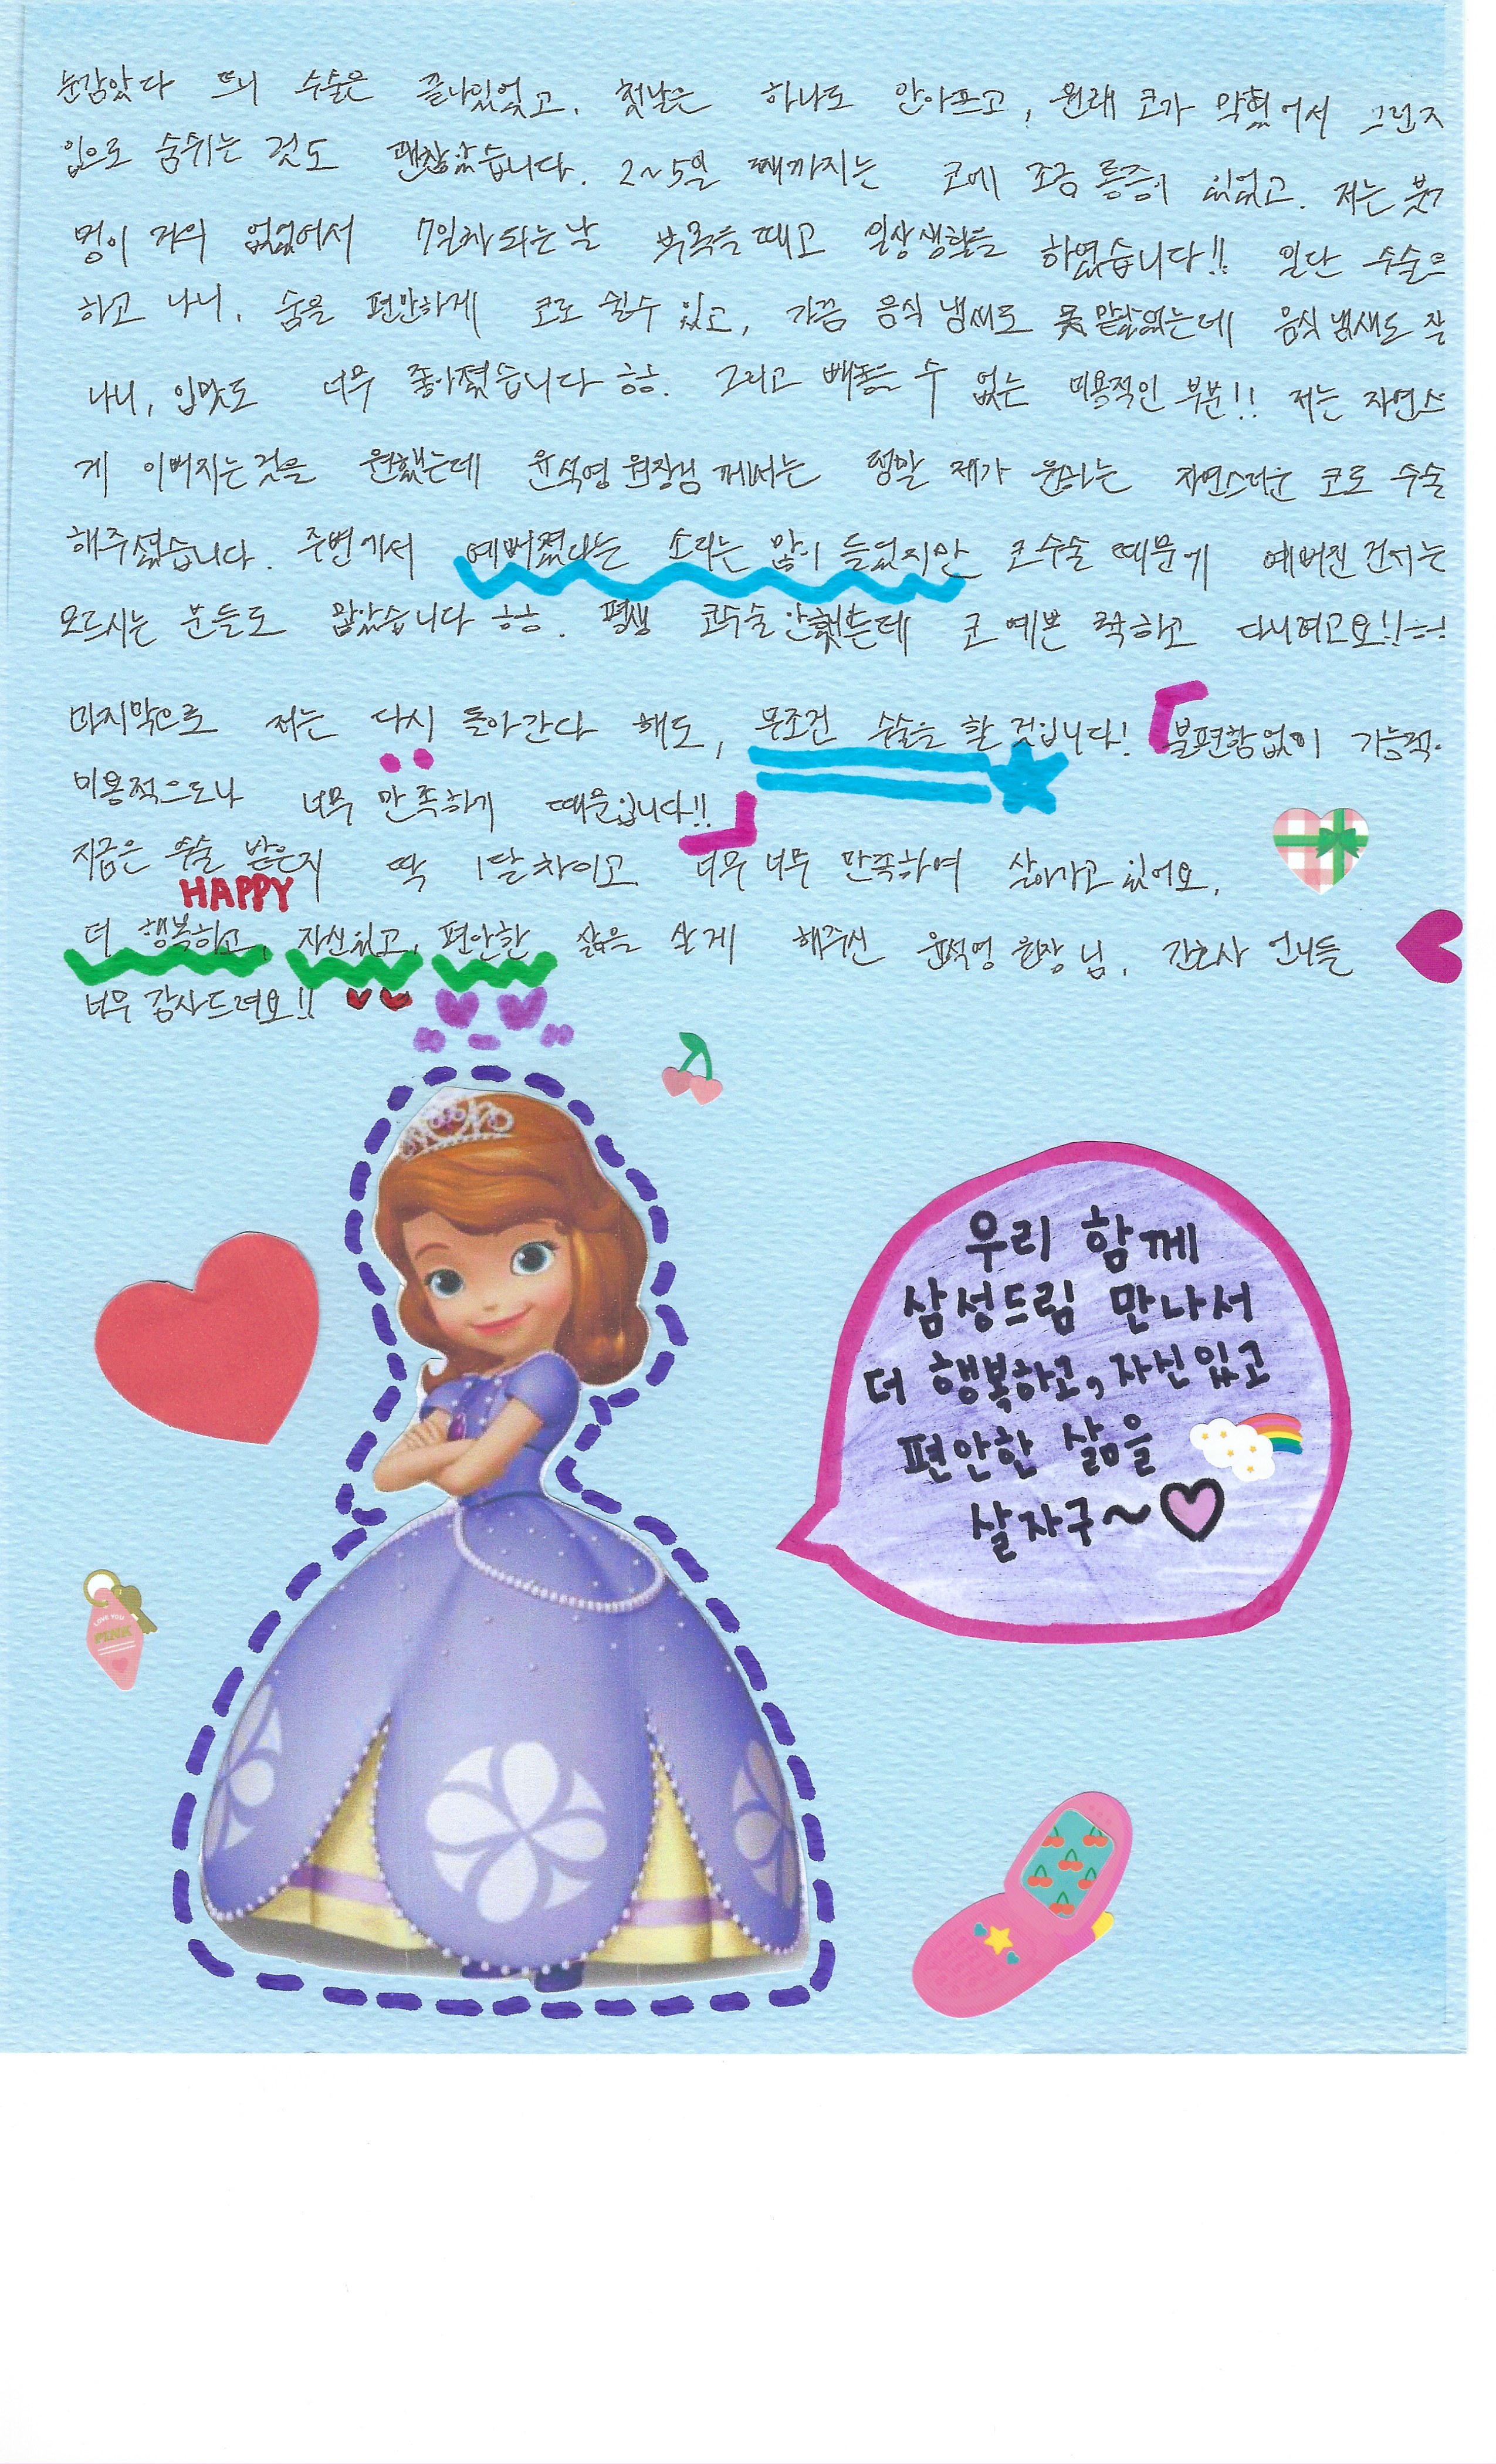 눈감았다 뜨니 수술은 끝나있었고, 첫날은 하나도 안아프고, 원래 코가 막혔어서 그런지
입으로 숨쉬는 것도 괜찮았습니다. 2~5일 때까지는 코에 조금 통증이 있었고. 저는 붓기
멍이 거의 없었어서 7일차 되는 날 부목을 떼고 일상생활을 하였습니다!! 일단 수술을
하고 나니, 숨을 편안하게 코로 쉴수 있고, 가끔 음식 냄씨도 못 맡았었는데 음식 냄새도 잘
나니, 입맛도 너무 좋아졌습니다 ㅎㅎ. 그리고 빼놓을 수 없는 미용적인 부분!! 저는 자연스
게 이뻐지는것을 원했는데 윤석영 원장님 께서는 정말 제가 원하는 자연스러운 코로 수술
해주셨습니다. 주변에서 예뻐졌다는 소리는 많이 들었지만 코수술 때문에 예뻐진 건지는
모르시는 분들도 많았습니다 ㅎㅎ. 평생 코수술 안했는데 코 예쁜 척하고 다니려고요!! ㅎㅎ
마지막으로 저는 다시 돌아간다 해도, 무조건 수술을 할 것입니다! 「불편함없이 기능적.
미용적으로나 너무 만족하기 때문입니다!!」
지금은 수술 받은지 딱 1달차이고 너무 너무 만족하여 살아가고 있어요.
HAPPY
더 행복하고, 자신있고, 편안한 삶을 살게 해주신 윤석영 원장님, 간호사 언니들
너무 감사드려요!!
우리 함께
삼성드림 만나서
더 행복하고, 자신있고
편안한 삶을
살자구~
LOVE YOU
PINK